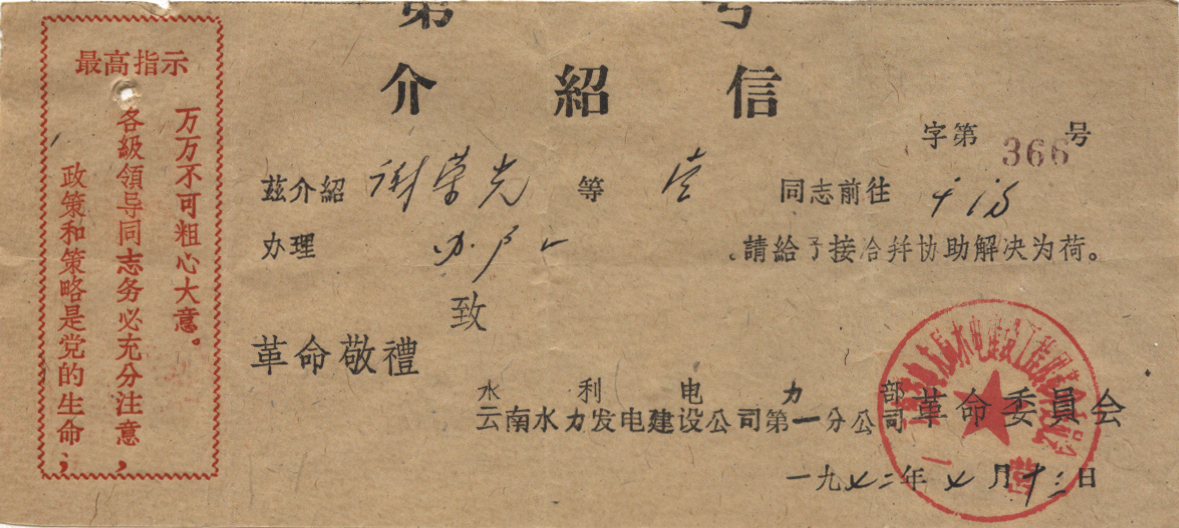 最高指示
政策和策略是党的生命；
各級領导同志务必充分注意，
万万不可粗心大意。
第 号
介紹信
字第366号
兹介紹 谢荣光 等 同志前往
办理 办户 。請給予接洽幷协助解决为荷。
致
革命敬禮
水利电力部
云南水力发电建设公司第一分公司革命委員会
一九七二年七月十三日